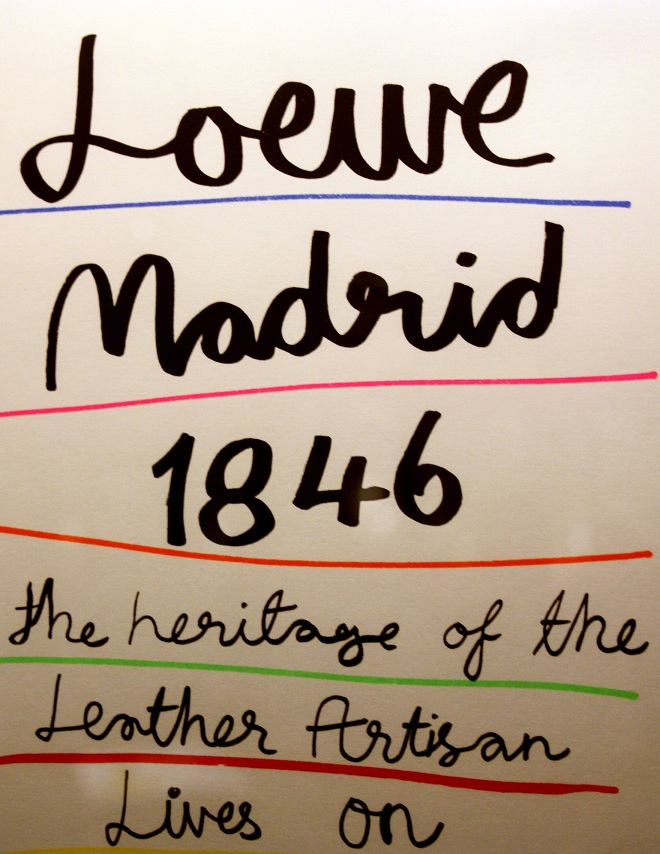 Loewe
Madrid
1846
the heritage of the
Leather Artisan
Lives on